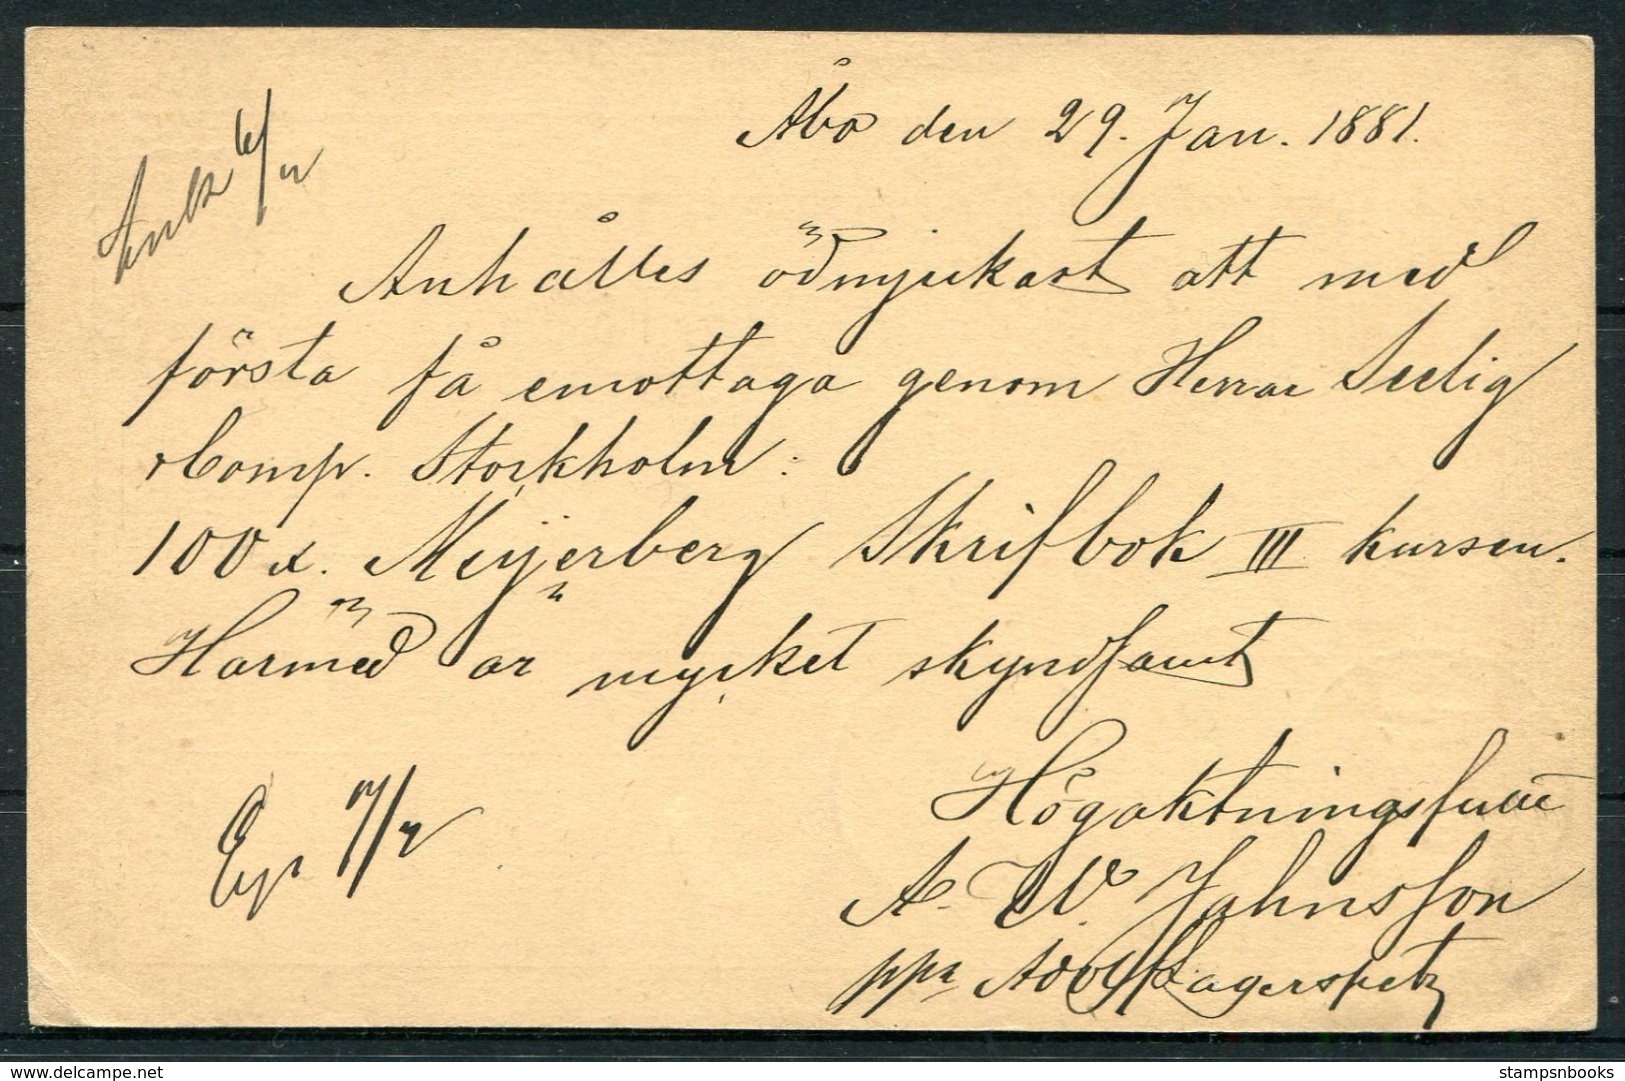 Åbo den 29. Jan. 1881.
Ank 6/2
Anhålles ödmjukast att med
första få emottaga genom Herrar Seelig
& Comp. Stockholm:
100 x. Meijerberg Skrifbok III kursen.
Härmed är mycket skyndsamt
Högaktningsfullt
Exp 7/2
A. W. Jahnsson
ppa Adolf Lagerspetz
delcampe.net
stampsnbooks